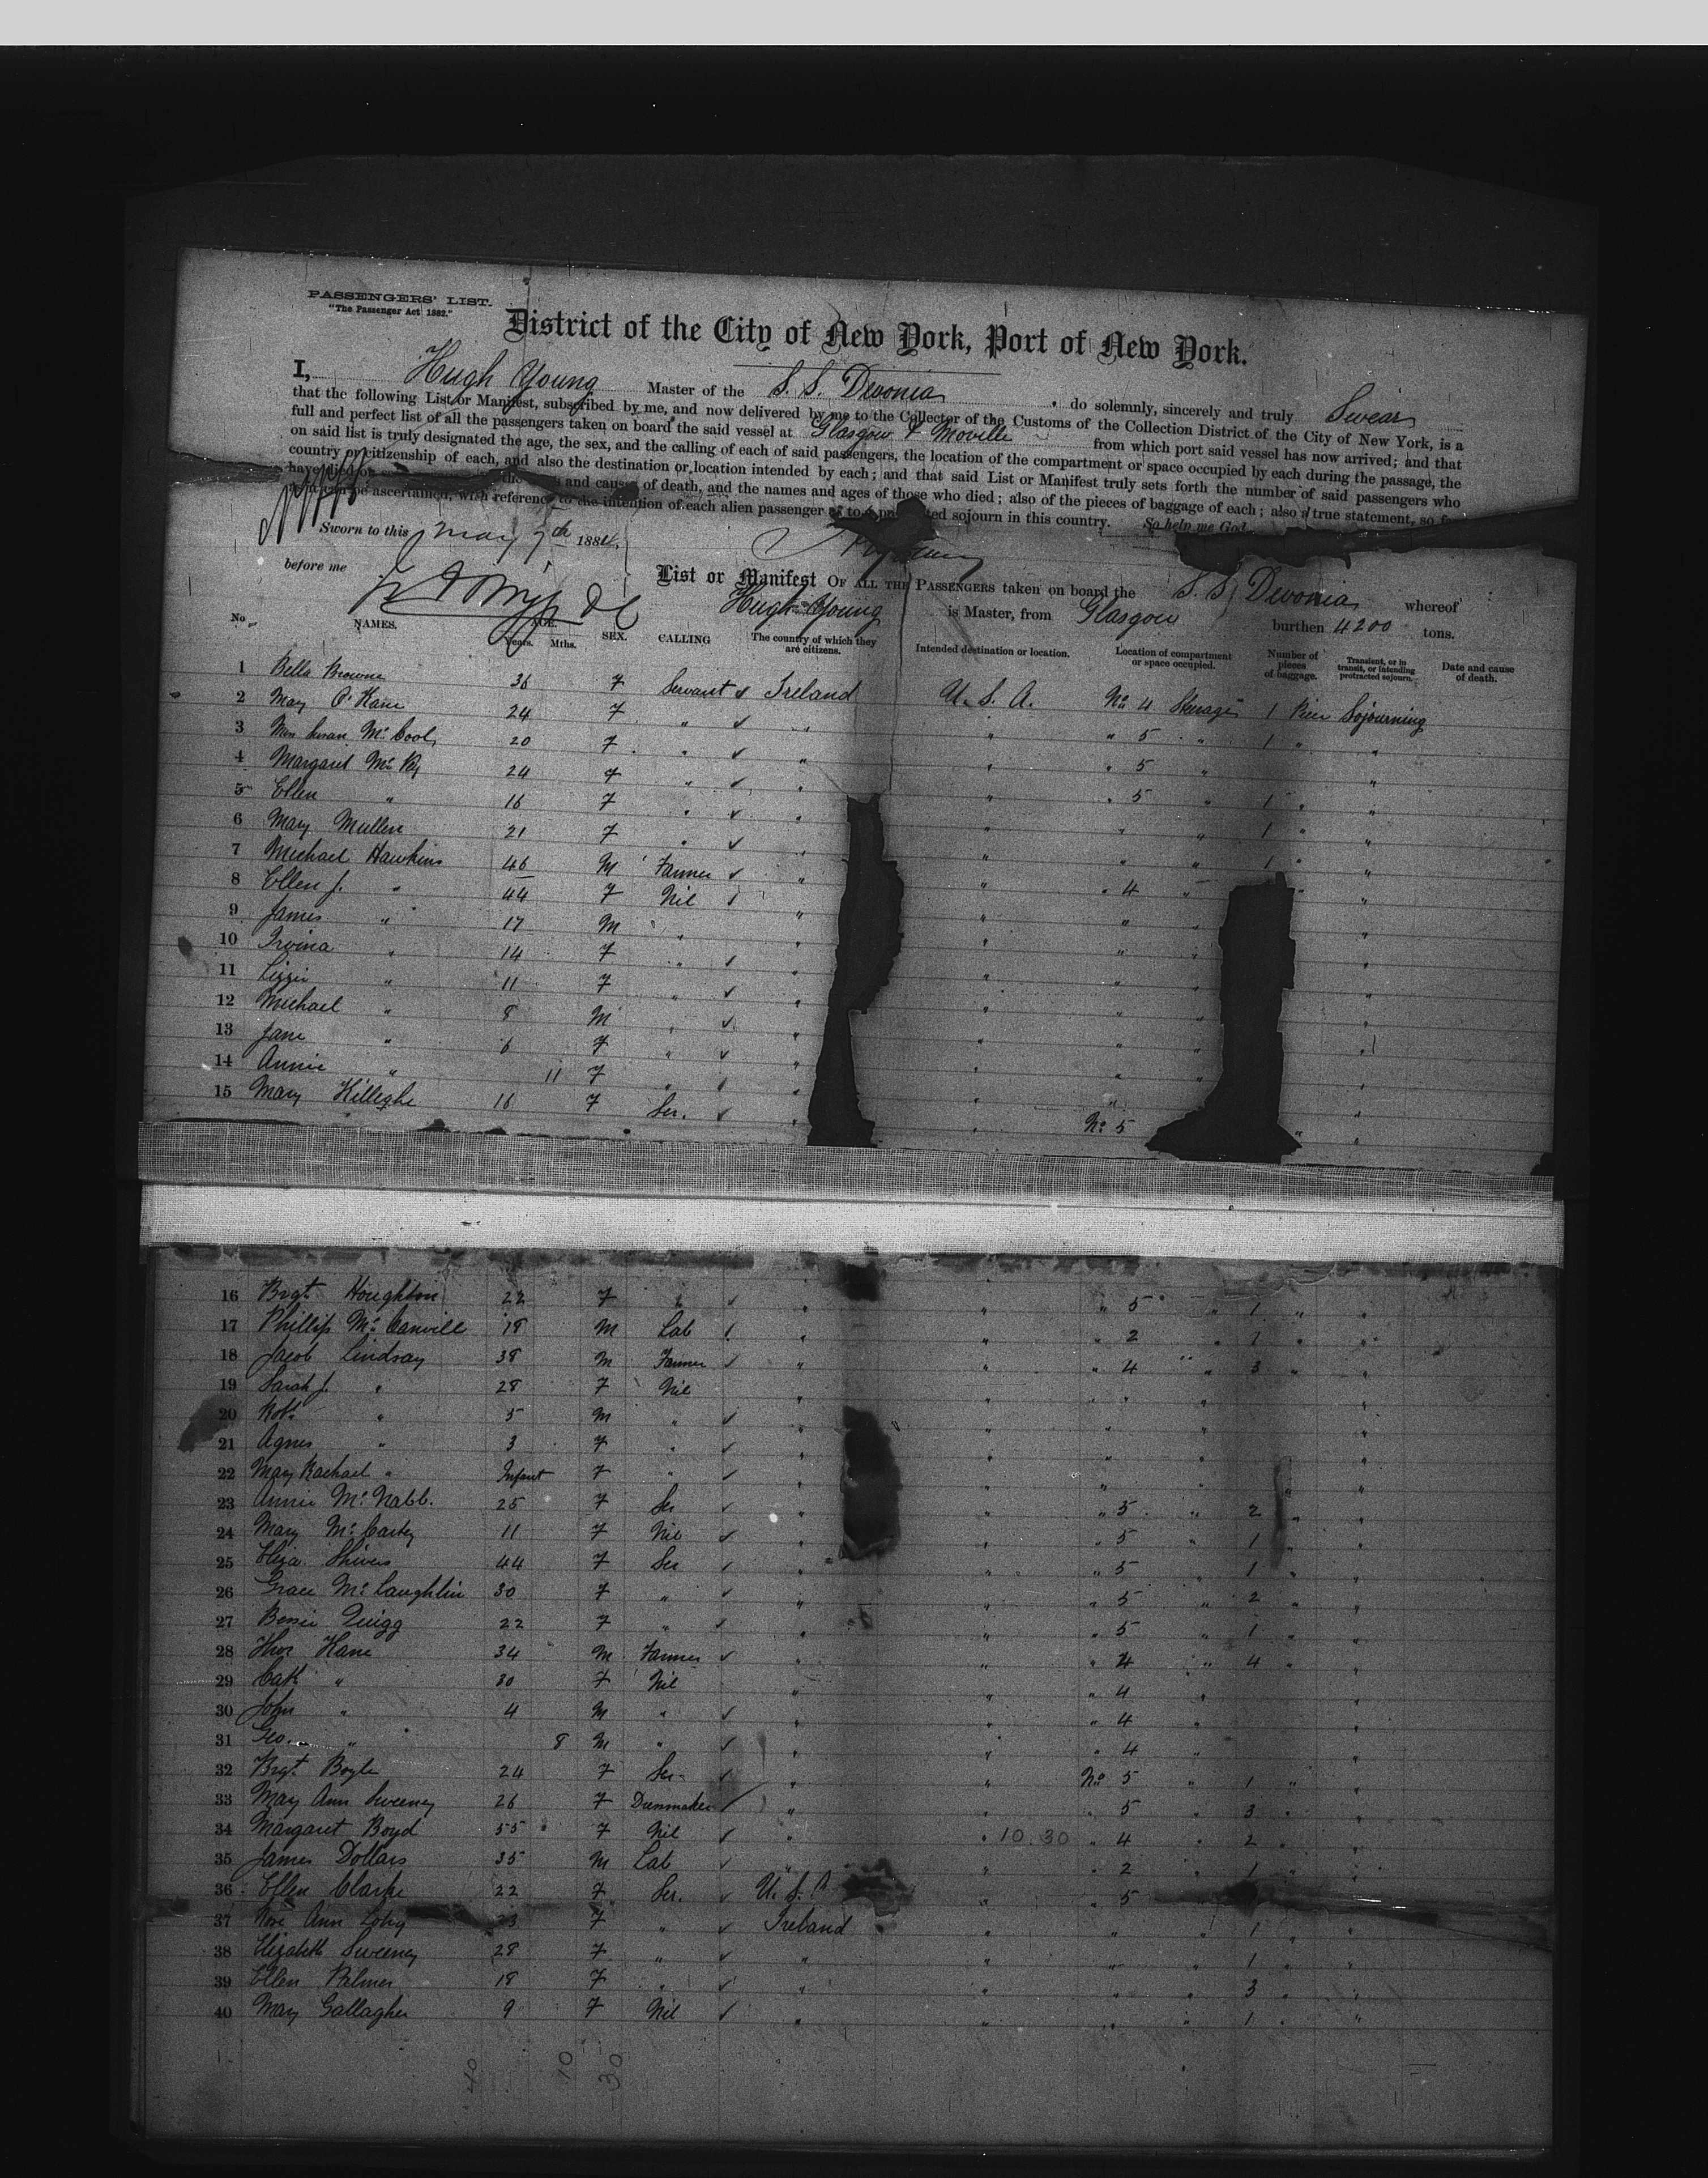 PASSENGERS' LIST.
"The Passenger Act 1882."
District of the City of New York, Port of New York.
I, Hugh Young Master of the S. S. Devonia, do solemnly, sincerely and truly Swear
that the following List or Manifest, subscribed by me, and now delivered by me to the Collector of the Customs of the Collection District of the City of New York, is a
full and perfect list of all the passengers taken on board the said vessel at Glasgow & Moville from which port said vessel has now arrived; and that
on said list is truly designated the age, the sex, and the calling of each of said passengers, the location of the compartment or space occupied by each during the passage, the
country or citizenship of each, and also the destination or location intended by each; and that said List or Manifest truly sets forth the number of said passengers who
have died on the and cause of death, and the names and ages of those who died; also of the pieces of baggage of each; also a true statement, so far
can be ascertained, with reference to the intention of each alien passenger as to a protracted sojourn in this country. So help me God.
Sworn to this May 7th 1884.
before me
List or Manifest OF ALL THE PASSENGERS taken on board the S. S. Devonia whereof
Hugh Young is Master, from Glasgow burthen 4200 tons.
No. NAMES. AGE. Years. Mths. SEX. CALLING The country of which they are citizens. Intended destination or location. Location of compartment or space occupied. Number of pieces of baggage. Transient, or in transit, or intending protracted sojourn. Date and cause of death.
1 Bella Browne 36 F Servant Ireland U. S. A. No 4 Steerage 1 Piece Sojourning
2 Mary O'Kane 24 F " " " " 5 " 1 " "
3 Miss Susan McCool 20 F " " " " 5 " "
4 Margaret 24 F " " " " 5 " 1 " "
5 Ellen " 16 F " " " " " 1 " "
6 Mary Mullin 21 F " " " " " 1 " "
7 Michael Hawkins 46 M Farmer " " " 4 " " "
8 Ellen J. " 44 F Nil " " " "
9 James " 17 M " " " " " "
10 Irvina " 14 F " " " " " "
11 Lizzie " 11 F " " " " " "
12 Michael " 8 M " " " " " "
13 Jane " 6 F " " " " " "
14 Annie " 11 F " " " " "
15 Mary Killeghe 16 F Ser. " " No 5 " "
16 Brgt Houghton 22 F " " " " 5 " 1 " "
17 Phillip McCanvill 18 M Lab " " " 2 " 1 " "
18 Jacob Lindsay 38 M Farmer " " " 4 " 3 " "
19 Sarah J. " 28 F Nil " " " " "
20 Robt " 5 M " " " " " "
21 Agnes " 3 F " " " " " "
22 Mary Rachael " Infant F " " " " " " "
23 Annie McNabb. 25 F Ser " " " 5 " 2 " "
24 Mary McCarty 11 F Nil " " " 5 " 1 " "
25 Eliza Shivers 44 F Ser " " " 5 " 1 " "
26 Grace McLaughlin 30 F " " " " 5 " 2 " "
27 Bessie Quigg 22 F " " " " 5 " 1 " "
28 Thos Kane 34 M Farmer " " " 4 " 4 " "
29 Cath " 30 F Nil " " " 4 " "
30 John " 4 M " " " " 4 " "
31 Geo. " 8 M " " " " 4 " "
32 Brgt Boyle 24 F Ser " " No 5 " 1 " "
33 Mary Ann Sweeney 26 F Dressmaker " " 5 " 3 " "
34 Margaret Boyd 55 F Nil " " 10.30 " 4 " 2 " "
35 James Dollars 35 M Lab " " " 2 " 1 " "
36 Ellen Clarke 22 F Ser. U. S. A " " 5
37 Rose Ann 23 F " Ireland " " " 1 " "
38 Elizabeth Sweeney 28 F " " " " " 1 " "
39 Ellen 18 F " " " " " 3 " "
40 Mary Gallagher 9 F Nil " " " " 1 " "
40 10 30